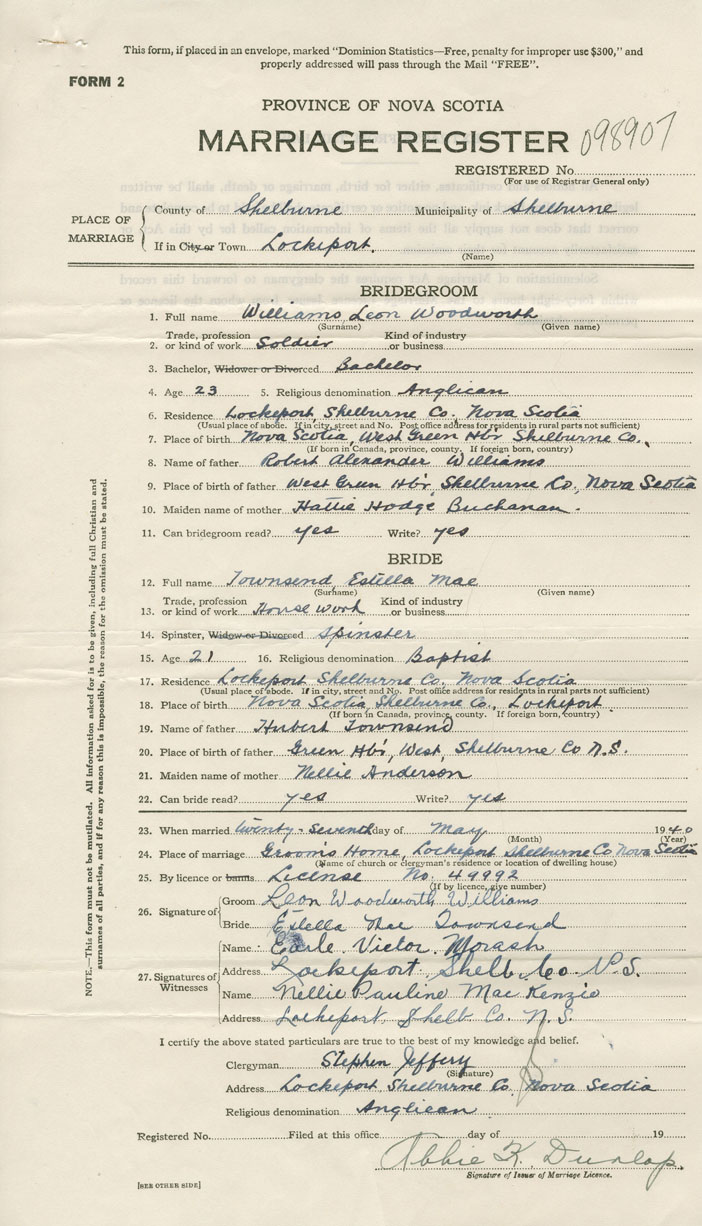 This form, if placed in an envelope, marked "Dominion Statistics—Free, penalty for improper use $300," and
properly addressed will pass through the Mail "FREE".
FORM 2
PROVINCE OF NOVA SCOTIA
MARRIAGE REGISTER 098907
REGISTERED No.
(For use of Registrar General only)
PLACE OF MARRIAGE
County of Shelburne Municipality of Shelburne
If in City or Town Lockeport.
(Name)
BRIDEGROOM
1. Full name Williams Leon Woodworth
(Surname) (Given name)
2. Trade, profession or kind of work Soldier Kind of industry or business
3. Bachelor, Widower or Divorced Bachelor
4. Age 23 5. Religious denomination Anglican
6. Residence Lockeport, Shelburne Co. Nova Scotia
(Usual place of abode. If in city, street and No. Post office address for residents in rural parts not sufficient)
7. Place of birth Nova Scotia, West Green Hb'r Shelburne Co.
(If born in Canada, province, county. If foreign born, country)
8. Name of father Robert Alexander Williams
9. Place of birth of father West Green Hb'r, Shelburne Co, Nova Scotia
10. Maiden name of mother Hattie Hodge Buchanan.
11. Can bridegroom read? yes Write? yes
BRIDE
12. Full name Townsend, Estella Mae
(Surname) (Given name)
13. Trade, profession or kind of work House work Kind of industry or business
14. Spinster, Widow or Divorced Spinster
15. Age 21 16. Religious denomination Baptist
17. Residence Lockeport Shelburne Co. Nova Scotia
(Usual place of abode. If in city, street and No. Post office address for residents in rural parts not sufficient)
18. Place of birth Nova Scotia, Shelburne Co., Lockeport
(If born in Canada, province, county. If foreign born, country)
19. Name of father Hubert Townsend
20. Place of birth of father Green Hb'r, West, Shelburne Co N.S.
21. Maiden name of mother Nellie Anderson
22. Can bride read? yes Write? yes
23. When married twenty-seventh day of May 1940
(Month) (Year)
24. Place of marriage Groom's Home, Lockeport Shelburne Co Nova Scotia
(Name of church or clergyman's residence or location of dwelling house)
25. By licence or banns License No. 49992
(If by licence, give number)
26. Signature of
Groom Leon Woodworth Williams
Bride Estella Mae Townsend
27. Signatures of Witnesses
Name Earle Victor Morash
Address Lockeport, Shelb. Co. N.S.
Name Nellie Pauline MacKenzie
Address Lockeport, Shelb Co. N.S.
I certify the above stated particulars are true to the best of my knowledge and belief.
Clergyman Stephen Jeffery
(Signature)
Address Lockeport, Shelburne Co, Nova Scotia
Religious denomination Anglican
Registered No. Filed at this office day of 19
Abbie K. Dunlop.
Signature of Issuer of Marriage Licence.
[SEE OTHER SIDE]
NOTE.—This form must not be mutilated. All information asked for is to be given, including full Christian and
surnames of all parties, and if for any reason this is impossible, the reason for the omission must be stated.